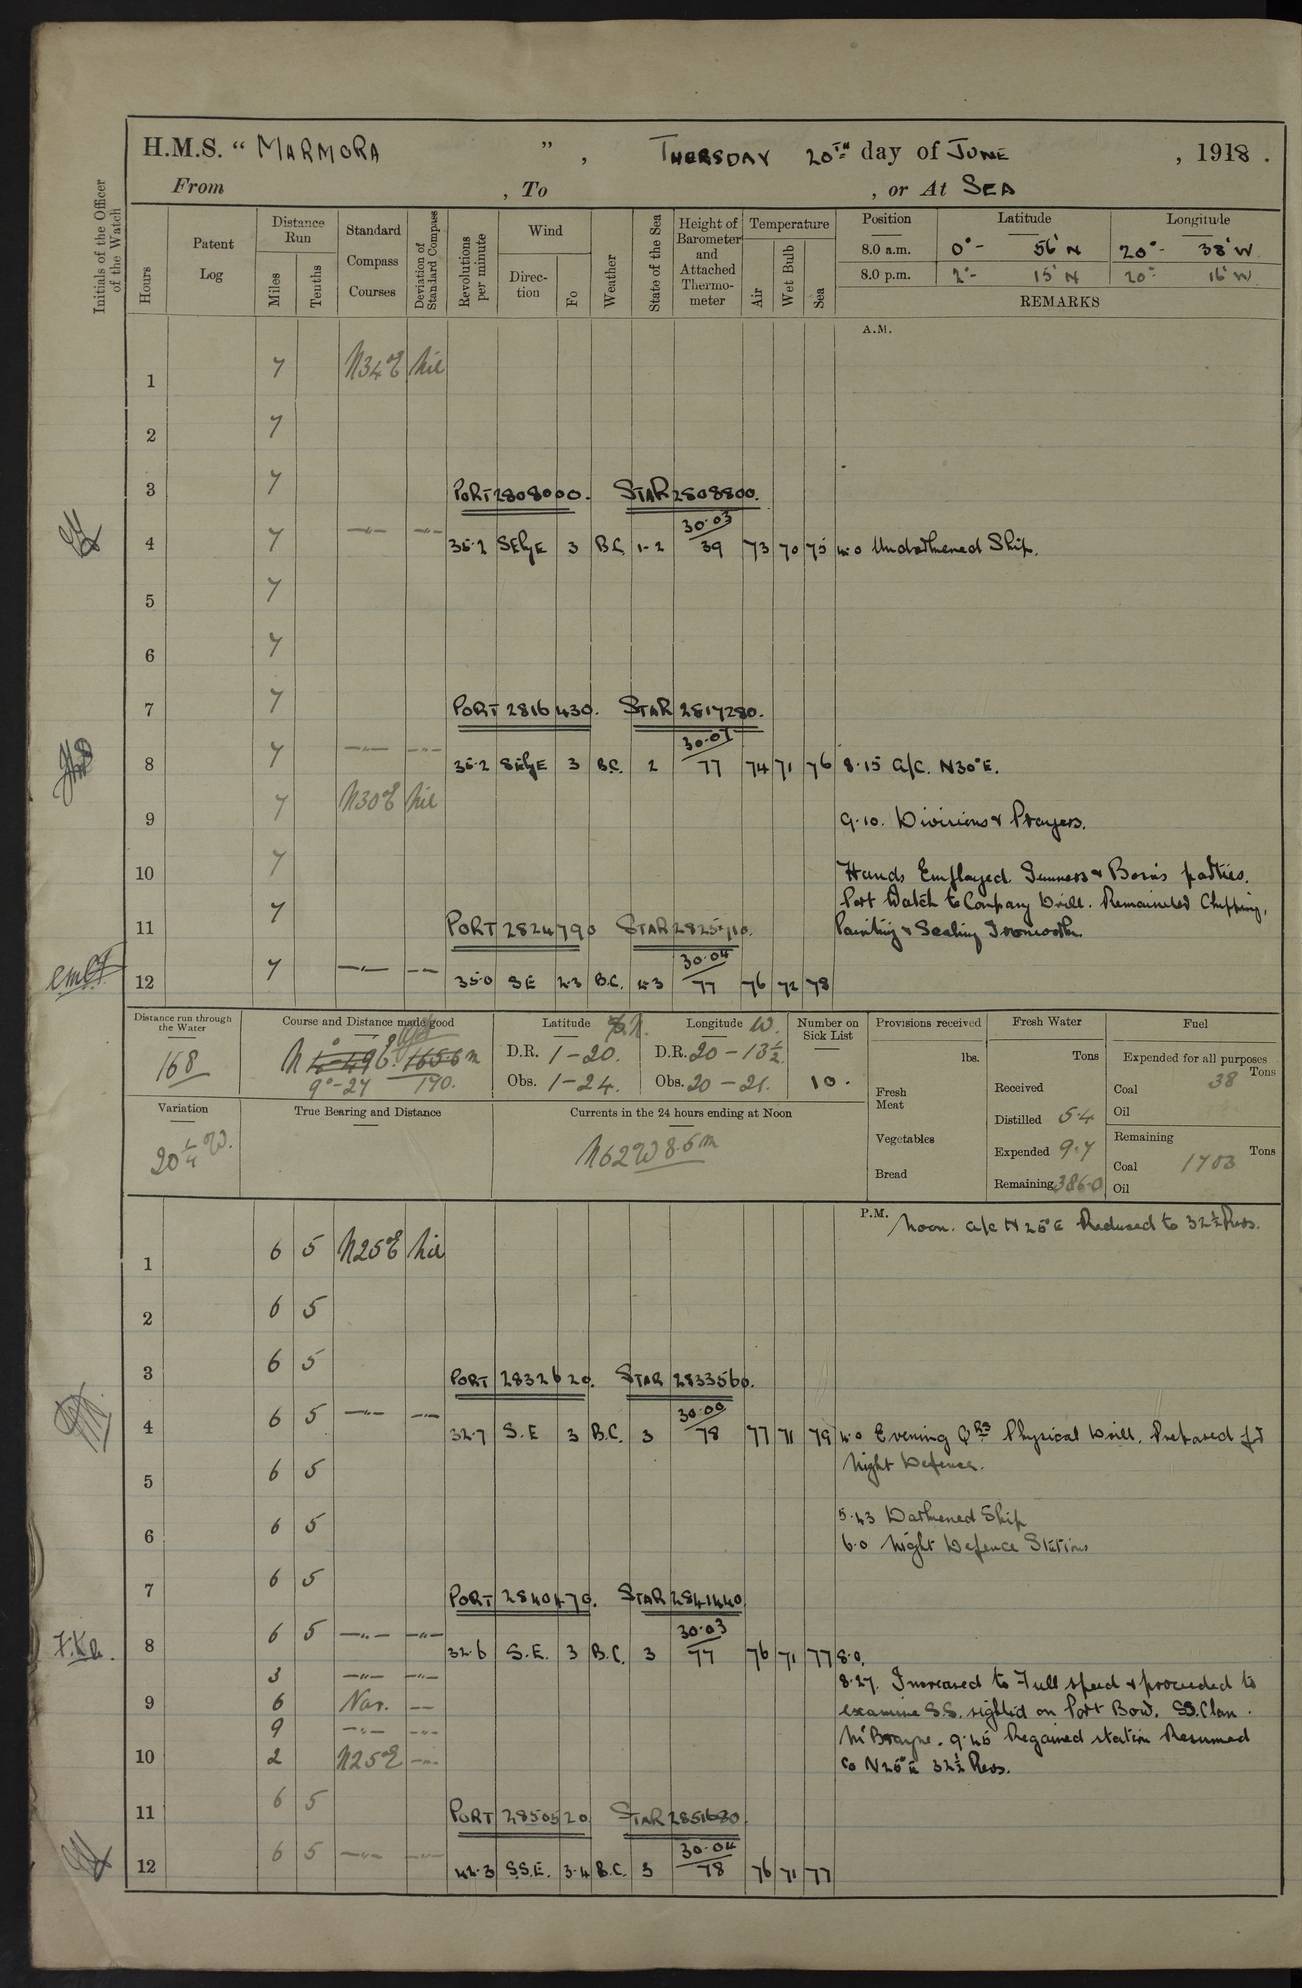 H.M.S. “ MARMORA ” , THURSDAY 20TH day of JUNE , 1918 .
From , To , or At SEA
Initials of the Officer of the Watch
Hours
Patent Log
Distance Run
Miles
Tenths
Standard Compass Courses
Deviation of Standard Compass
Revolutions per minute
Wind
Direction
Fo
Weather
State of the Sea
Height of Barometer and Attached Thermometer
Temperature
Air
Wet Bulb
Sea
Position Latitude Longitude
8.0 a.m. 0°- 56' N 20°- 38' W
8.0 p.m. 2°- 15' N 20°- 16' W
REMARKS
A.M.
1 7 N34°E Nil
2 7
3 7 PORT 2808000. STAR 2808800.
4 7 —"— —"— 35.2 SEbyE 3 B.C. 1-2 30.03 39 73 70 75 4.0 Undarkened Ship.
5 7
6 7
7 7 PORT 2816430. STAR 2817280.
8 7 —"— —"— 35.2 SEbyE 3 B.C. 2 30.07 77 74 71 76 8.15 a/c. N30°E.
9 7 N30°E Nil 9.10. Divisions & Prayers.
10 7 Hands Employed. Gunners & Bosns parties.
Port Watch to Company Drill. Remainder Chipping,
11 7 PORT 2824790 STAR 2825710. Painting & Scaling Ironwork.
12 7 —"— —"— 35.0 SE 2.3 B.C. 2.3 30.04 77 76 72 78
Distance run through the Water
168
Course and Distance made good
N
9°-27 190.
Latitude N.
D.R. 1-20.
Obs. 1-24.
Longitude W.
D.R. 20-13½
Obs. 20-21.
Number on Sick List
10.
Provisions received
lbs.
Fresh Meat
Vegetables
Bread
Fresh Water
Tons
Received
Distilled 54
Expended 9.7
Remaining 386.0
Fuel
Expended for all purposes
Tons
Coal 38
Oil
Remaining
Tons
Coal 1703
Oil
Variation
20¼ W.
True Bearing and Distance
Currents in the 24 hours ending at Noon
N62W 8.5m
P.M. Noon. a/c N25°E Reduced to 32½ Revs.
1 6 5 N25°E Nil
2 6 5
3 6 5 PORT 2832620. STAR 2833560.
4 6 5 —"— —"— 32.7 S.E 3 B.C. 3 30.00 78 77 71 79 4.0 Evening Qrs Physical Drill. Prepared for
5 6 5 Night Defence.
5.43 Darkened Ship
6 6 5 6.0 Night Defence Stations
7 6 5 PORT 2840470. STAR 2841440
8 6 5 —"— —"— 32.6 S.E. 3 B.C. 3 30.03 77 76 71 77 8.0.
3 —"— —"— 8.27. Increased to Full speed & proceeded to
9 6 Var. — examine S.S. sighted on Port Bow. SS. Clan
9 —"— —"— 9.45 Regained station Resumed
10 2 N25°E —"— Co N25°E 32½ Revs.
11 6 5 PORT 2850520 STAR 2851680
12 6 5 —"— —"— 42.3 S.S.E. 3.4 B.C. 3 30.04 78 76 71 77